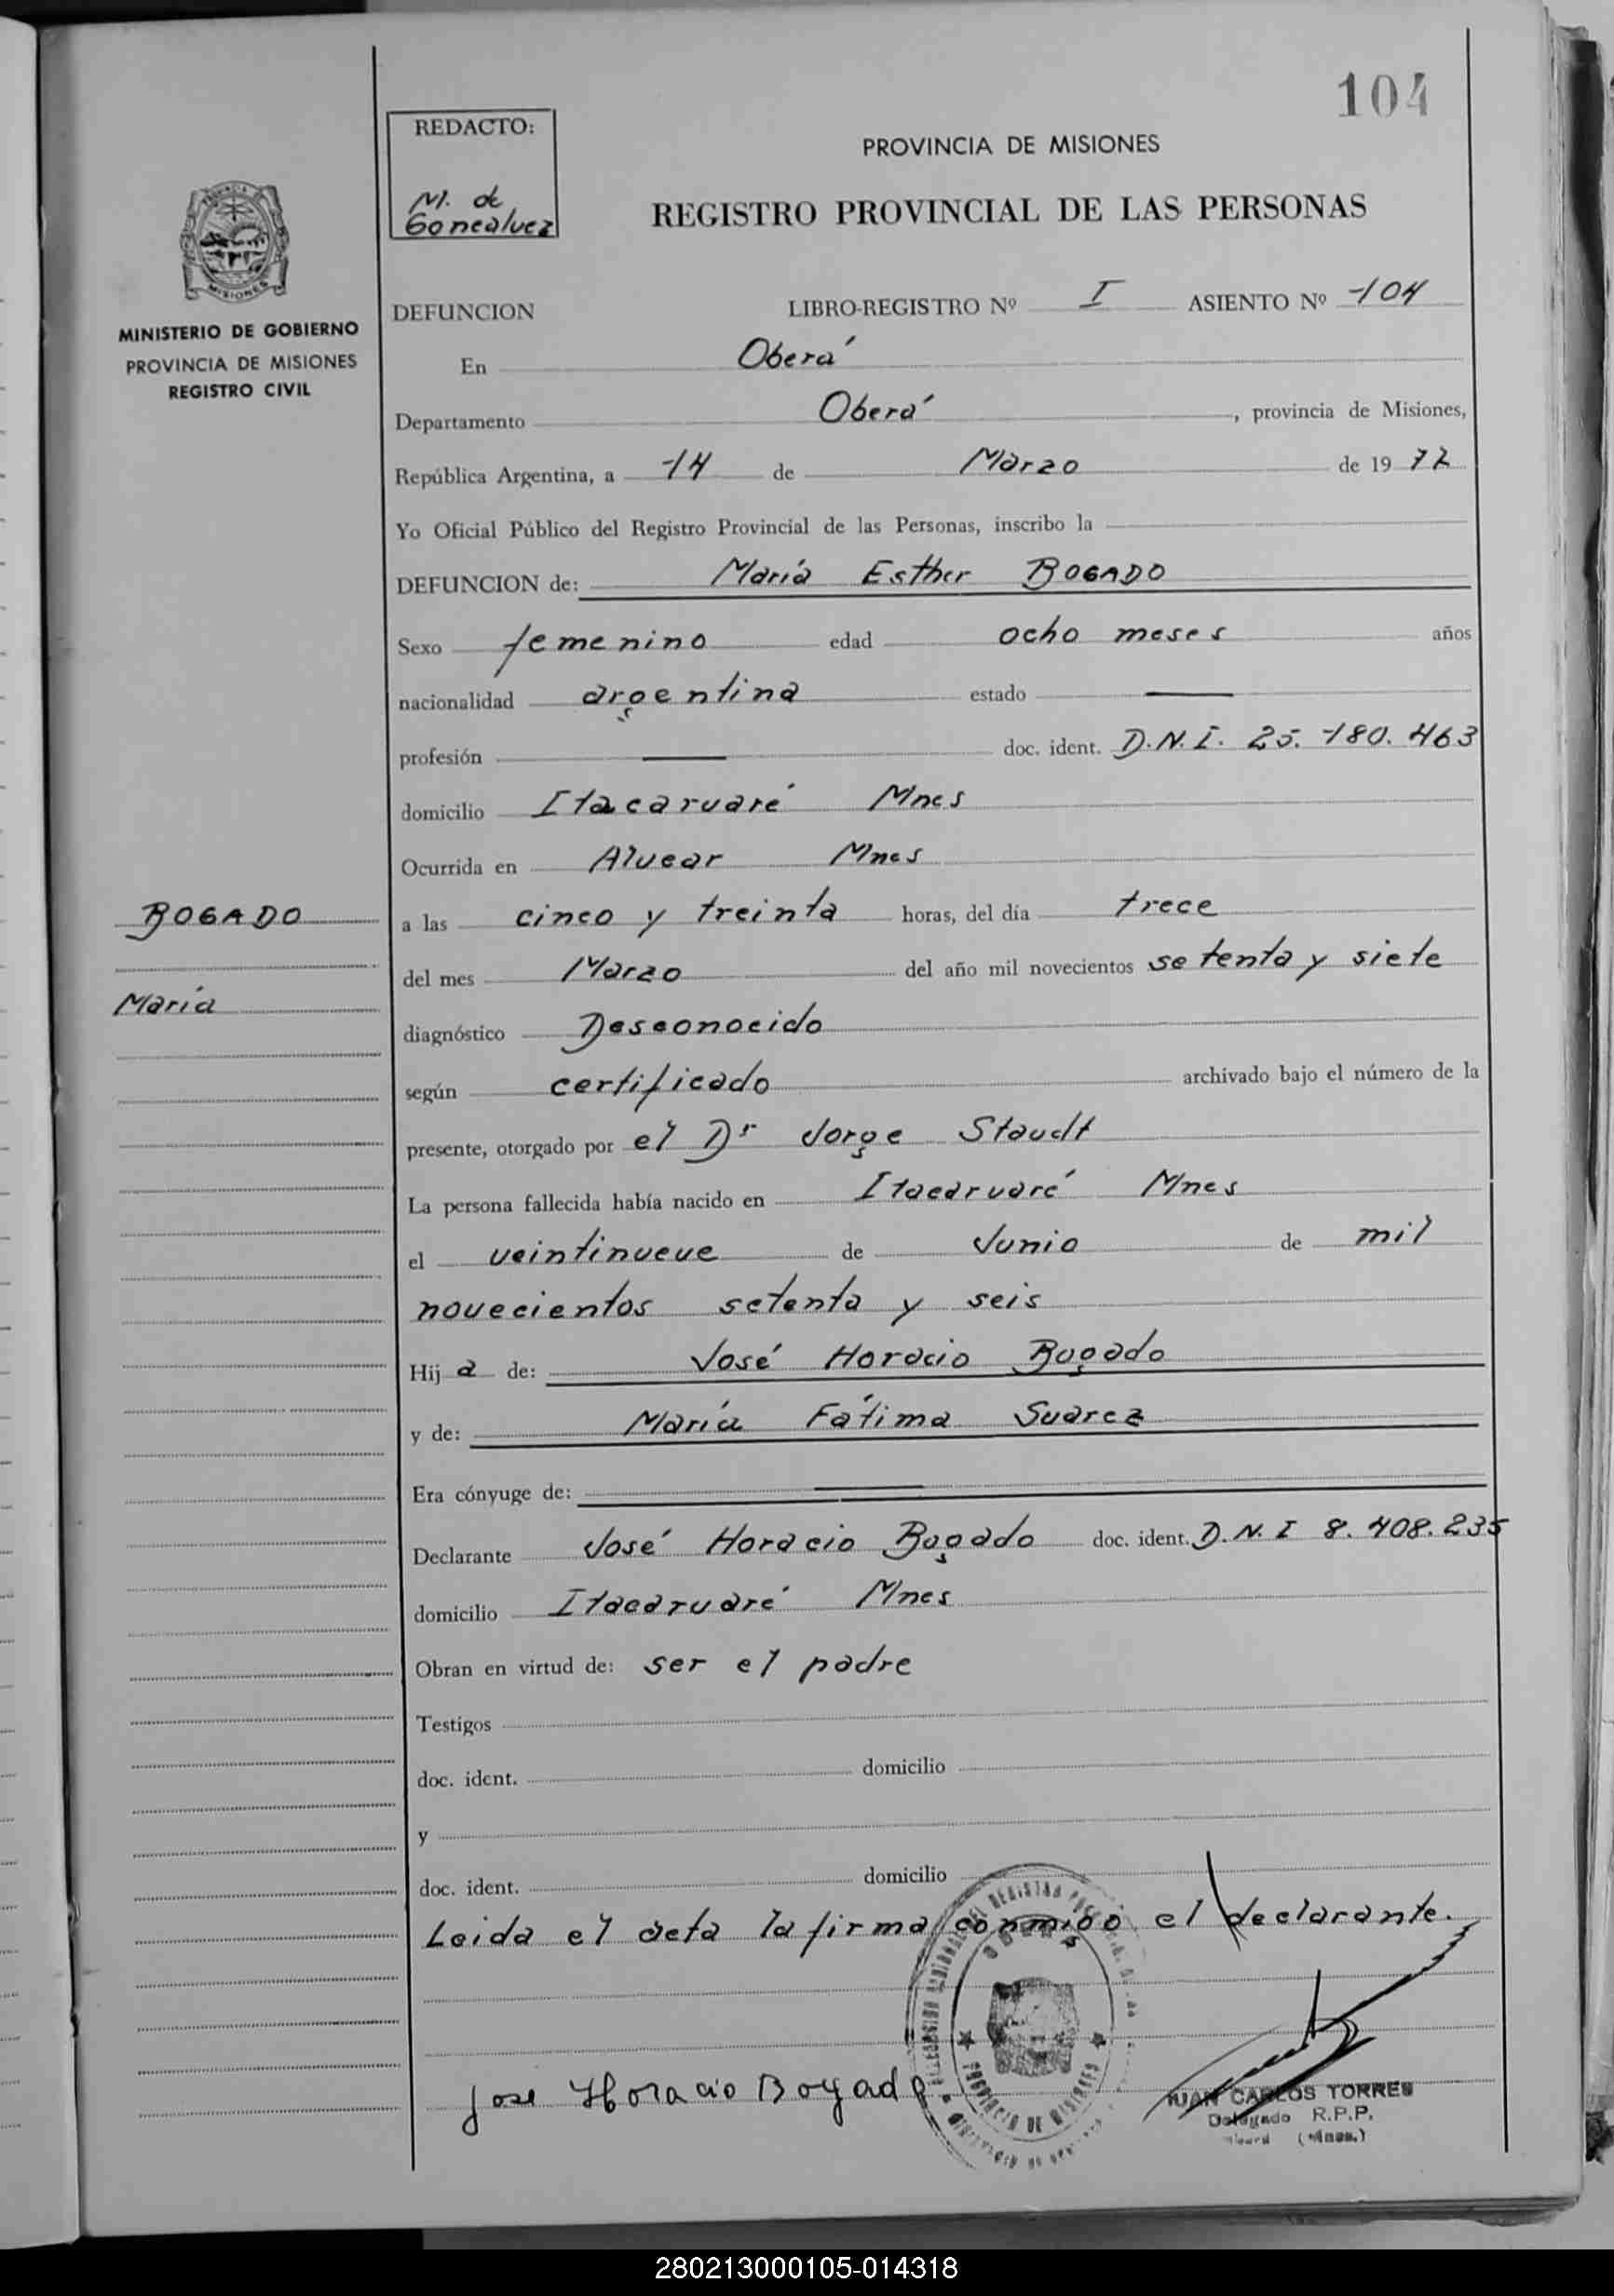 104
REDACTO:
M. de
Goncalvez
PROVINCIA DE MISIONES
REGISTRO PROVINCIAL DE LAS PERSONAS
MISIONES
MINISTERIO DE GOBIERNO
PROVINCIA DE MISIONES
REGISTRO CIVIL
DEFUNCION LIBRO-REGISTRO Nº I ASIENTO Nº 104
En Oberá
Departamento Oberá, provincia de Misiones,
República Argentina, a 14 de Marzo de 19 77
Yo Oficial Público del Registro Provincial de las Personas, inscribo la
DEFUNCION de: María Esther BOGADO
Sexo femenino edad ocho meses años
nacionalidad argentina estado —
profesión — doc. ident. D.N.I. 25.180.463
domicilio Itacaruaré Mnes
Ocurrida en Alvear Mnes
BOGADO
a las cinco y treinta horas, del día trece
del mes Marzo del año mil novecientos setenta y siete
María
diagnóstico Desconocido
según certificado archivado bajo el número de la
presente, otorgado por el Dr Jorge Staudt
La persona fallecida había nacido en Itacaruaré Mnes
el veintinueve de Junio de mil
novecientos setenta y seis
Hij a de: José Horacio Bogado
y de: María Fátima Suarez
Era cónyuge de: —
Declarante José Horacio Bogado doc. ident. D.N.I 8.408.235
domicilio Itacaruaré Mnes
Obran en virtud de: ser el padre
Testigos
doc. ident. domicilio
y
doc. ident. domicilio
Leida el acta la firma conmigo el declarante.
Jose Horacio Bogado
PROVINCIA DE MISIONES
JUAN CARLOS TORRES
Delegado R.P.P.
(Mnes.)
280213000105-014318